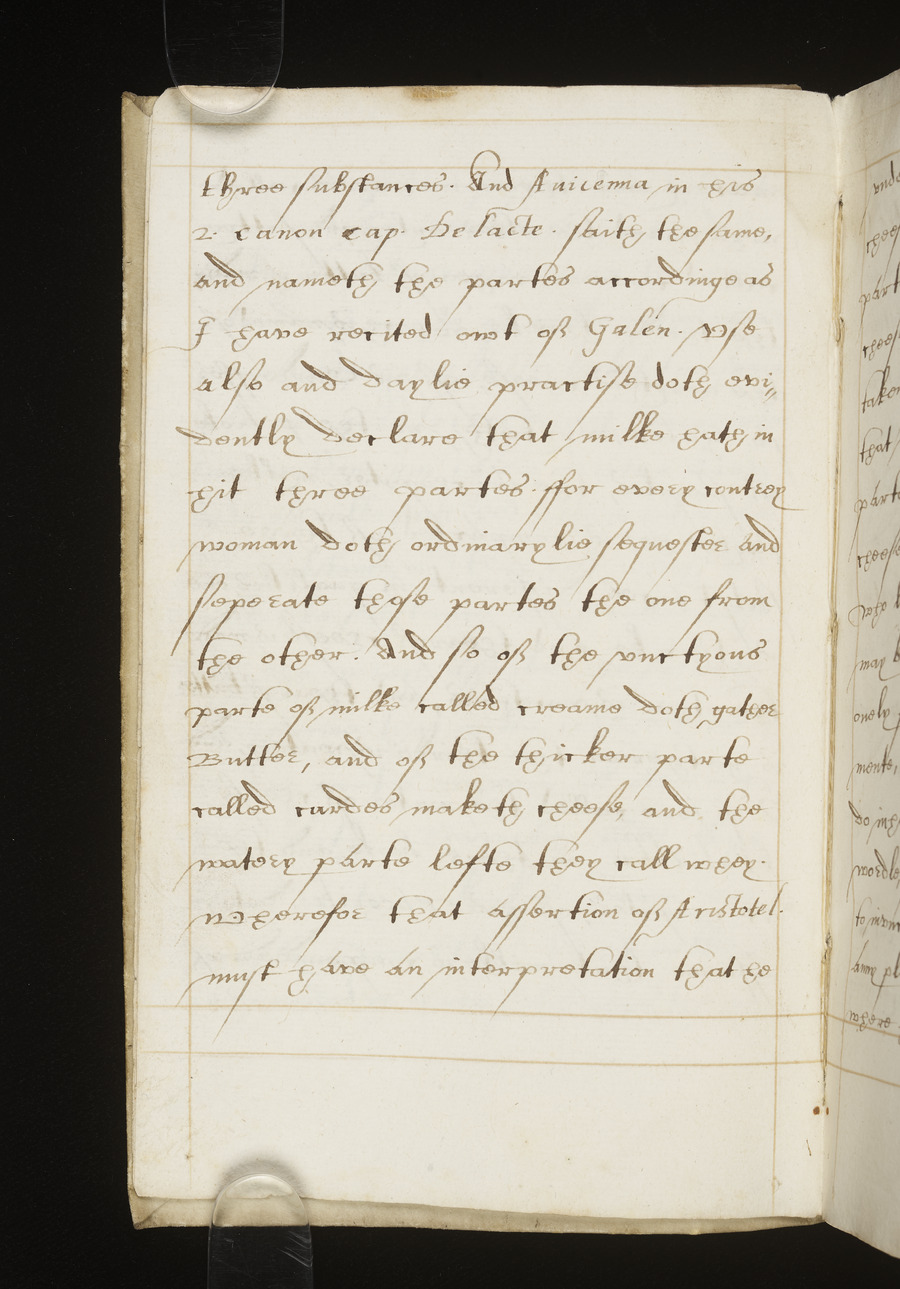 three substances. And Auicenna in his
2. canon cap. De lacte. saith the same,
and nameth the partes accordinge as
I have recited owt of Galen. Vse
also and daylie practise doth evi„
dently declare that milke hath in
hit three partes. ffor every contrey
woman doth ordinarylie sequester and
seperate those partes the one from
the other. And so of the vnctyous
parte of milke called creame doth gather
Butter, and of the thicker parte
called cardes maketh cheese, and the
watery parte lefte they call whey.
Wherefor that assertion of Aristotel.
must have an interpretation that he
vnde
chee
part
chees
taken
that
parte
cheese
who
may b
onely
mente,
do inh
wordle
any pl
where